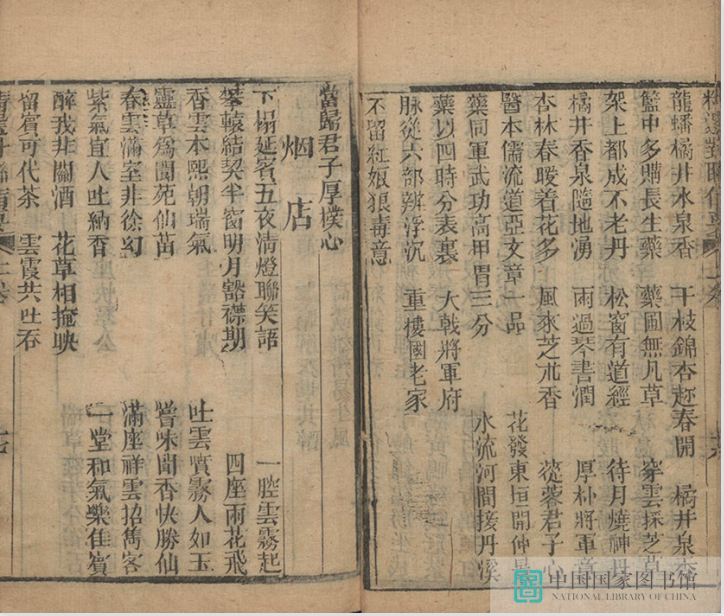 龍蟠橘井水泉香 千枝錦杏趂春開 橘井泉香
籃中多贈長生藥 藥圃無凡草 穿雲採芝草
架上都成不老丹 松窗有道經 待月燒神丹
橘井香泉隨地湧 雨過琴書潤 厚朴將軍意
杏林春暖着花多 風來芝朮香 蓯蓉君子心
醫本儒流道亞文章一品 花發東垣開仲景
藥同軍武功高甲冑三分 水流河間接丹溪
藥以四時分表裏 大戟將軍府
脉從六部辨浮沉 重樓國老家
不留紅娘狼毒意
當歸君子厚樸心
烟店
下榻延賓五夜清燈聯笑語 一腔雲霧起
攀轅結契半窗明月豁襟期 四座雨花飛
香雲本熙朝瑞氣 吐雲噴霧人如玉
靈草爲閬苑仙苗 嘗味聞香快勝仙
春雲滿室非徐幻 滿座祥雲招雋客
紫氣宜人吐納香 一堂和氣樂佳賓
醉我非關酒 花草相掩映
留賓可代茶 雲霞共吐吞
中国国家图书馆
NATIONAL LIBRARY OF CHINA